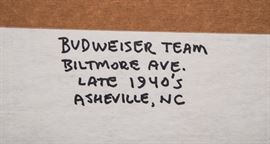 BUDWEISER TEAM
BILTMORE AVE.
LATE 1940'S
ASHEVILLE, NC